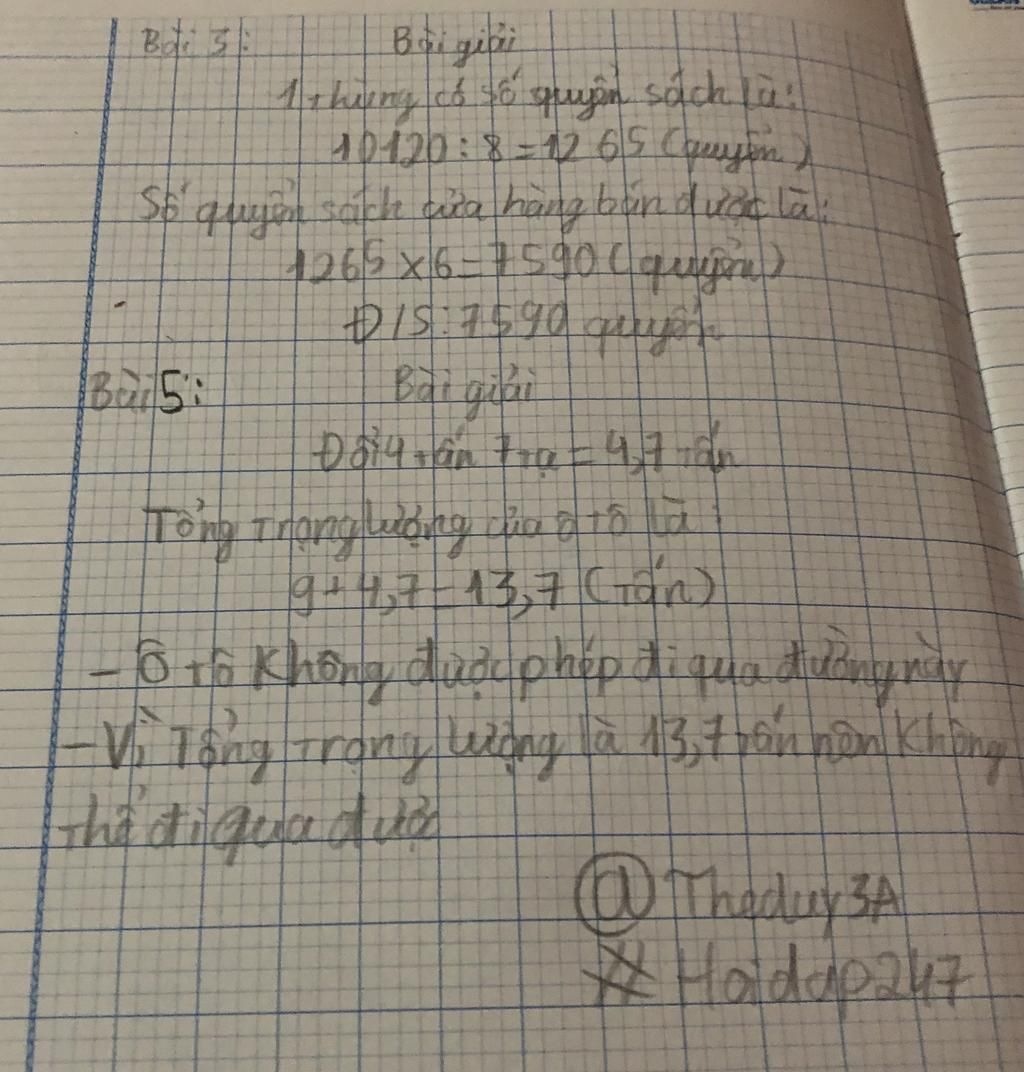 Bài 3: Bài giải
1 thùng có số quyển sách là:
10120 : 8 = 1265 (quyển)
Số quyển sách cửa hàng bán được là:
1265 x 6 = 7590 (quyển)
Đ/S: 7590 quyển
Bài 5: Bài giải
Đổi 4 tấn 7 tạ = 4,7 tấn
Tổng trọng lượng của ô tô là:
9 + 4,7 = 13,7 (tấn)
- Ô tô không được phép đi qua đường này
- Vì Tổng trọng lượng là 13,7 tấn nên không
thể đi qua được
@ Theduy3A
# Hoidap247